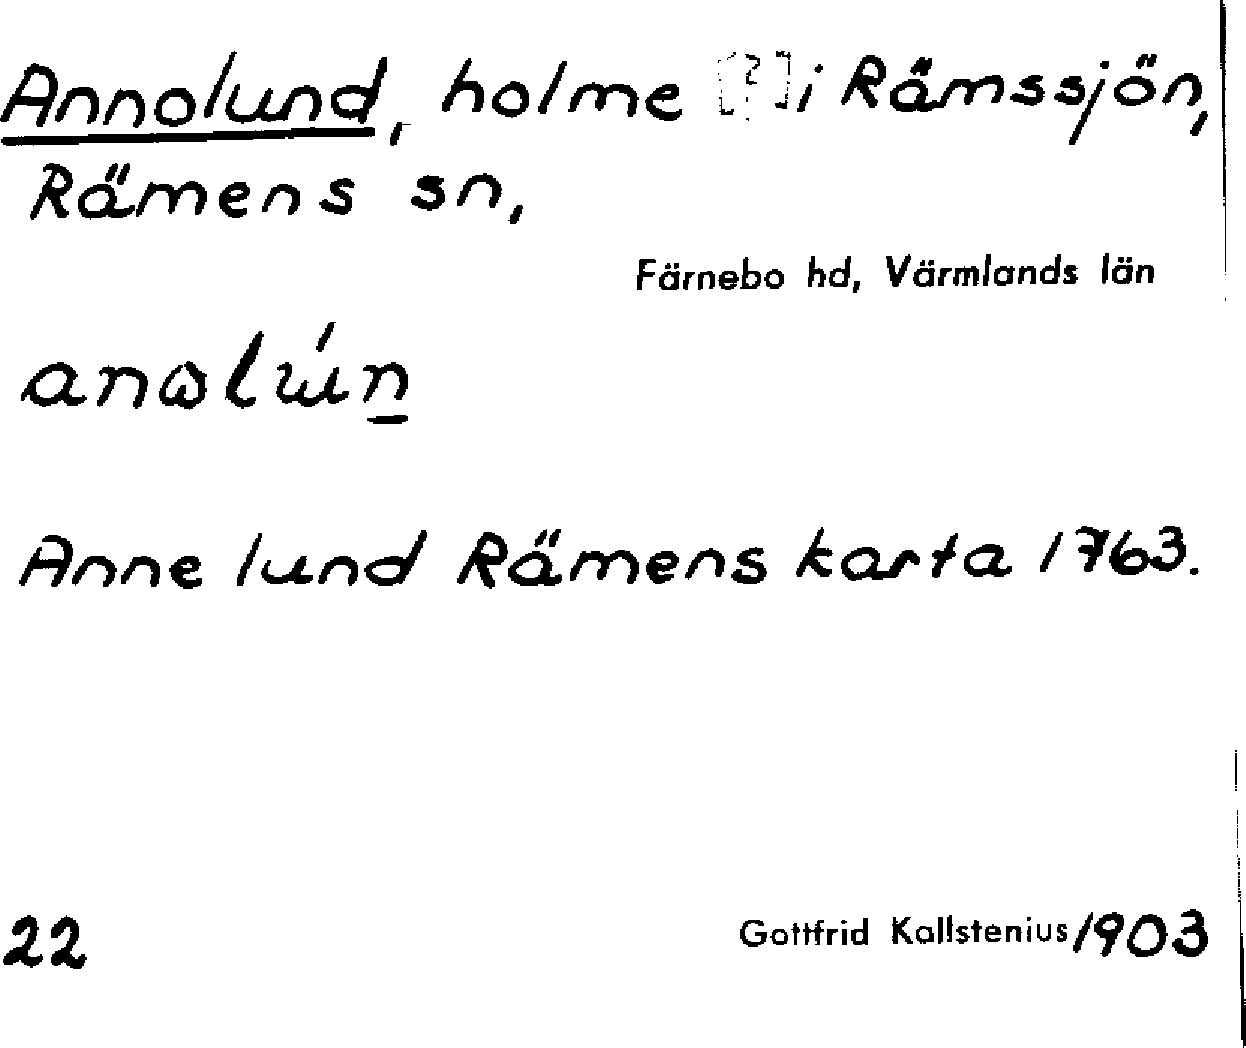 Annolund, holme [?] i Rämssjön,
Rämens sn,
Färnebo hd, Värmlands län
Anne lund Rämens karta 1763.
22 Gottfrid Kallstenius/1903